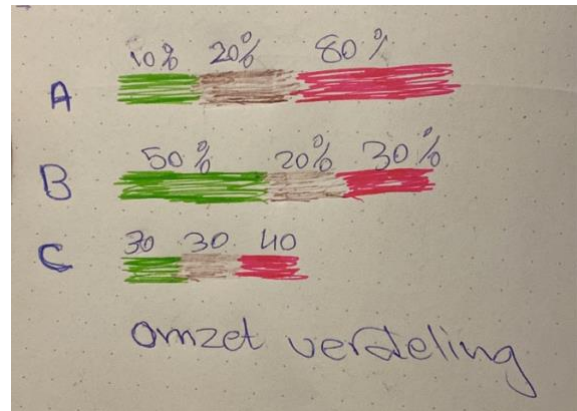 10% 20% 80%
A
50% 20% 30%
B
30 30 40
C
omzet verdeling